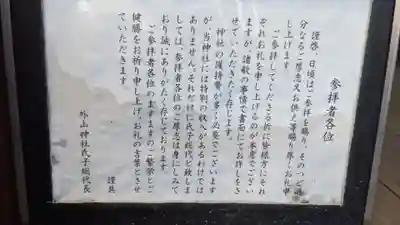 参拝者各位
謹啓、日頃はご参拝を賜り、そのつど過
分なるご厚志又お供え等賜り厚くお礼申
し上げます
ご参拝してくださる折に皆様方にそれ
ぞれお礼を申し上げるのが本意でござい
ますが、諸般の事情で書面にてお許しを
せていただきたく存じます。
神社の護持費が多く必要でございます
が、当神社には特別の収入があるわけでは
ありません。それだけに氏子総代と致しま
しては、参拝者各位のご厚志は身にしみて
おり誠にありがたく存じております
ご参拝者各位のますますのご繁栄とご
健勝をお祈り申し上げ、お礼の言葉とさせ
ていただきます
謹具
外山神社氏子総代長